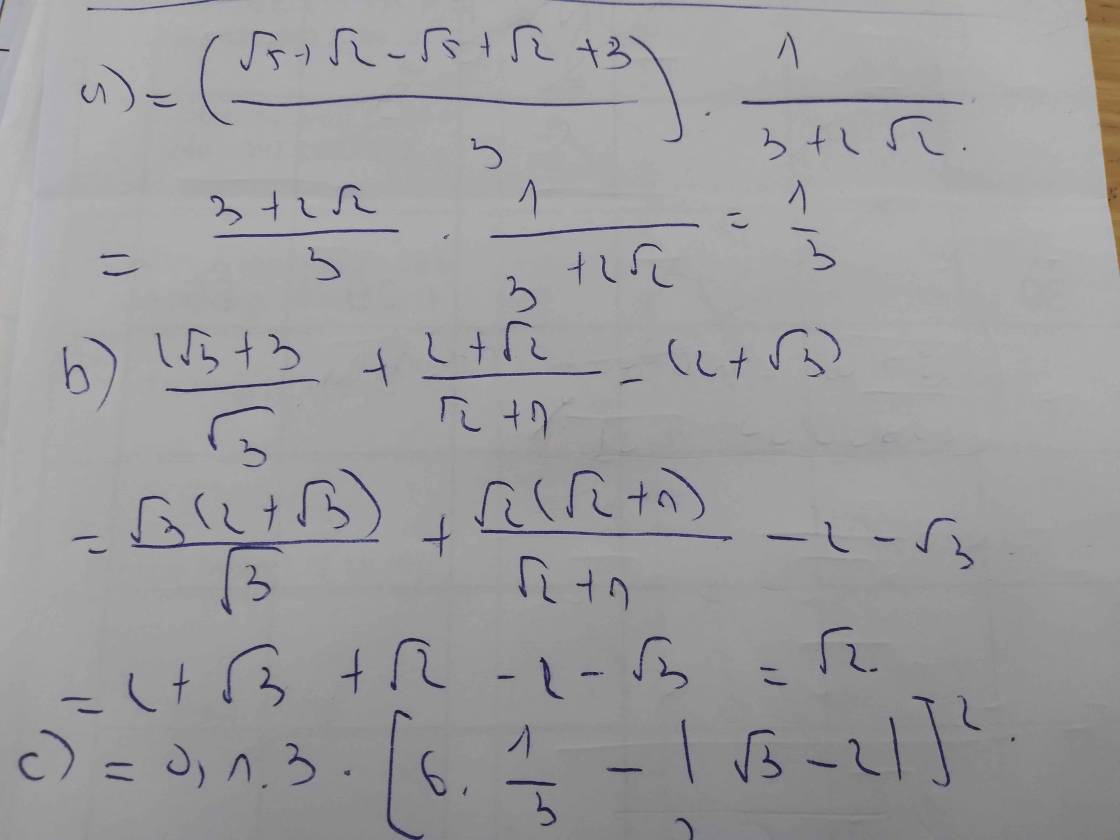 a) = ( (√5 + √2 - √5 + √2 + 3) / 3 ) . 1 / (3 + 2√2).
= (3 + 2√2) / 3 . 1 / (3 + 2√2) = 1/3
b) (2√3 + 3) / √3 + (2 + √2) / (√2 + 1) - (2 + √3)
= √3(2 + √3) / √3 + √2(√2 + 1) / (√2 + 1) - 2 - √3
= 2 + √3 + √2 - 2 - √3 = √2.
c) = 0,1.3 . [6. 1/3 - |√3 - 2|]².